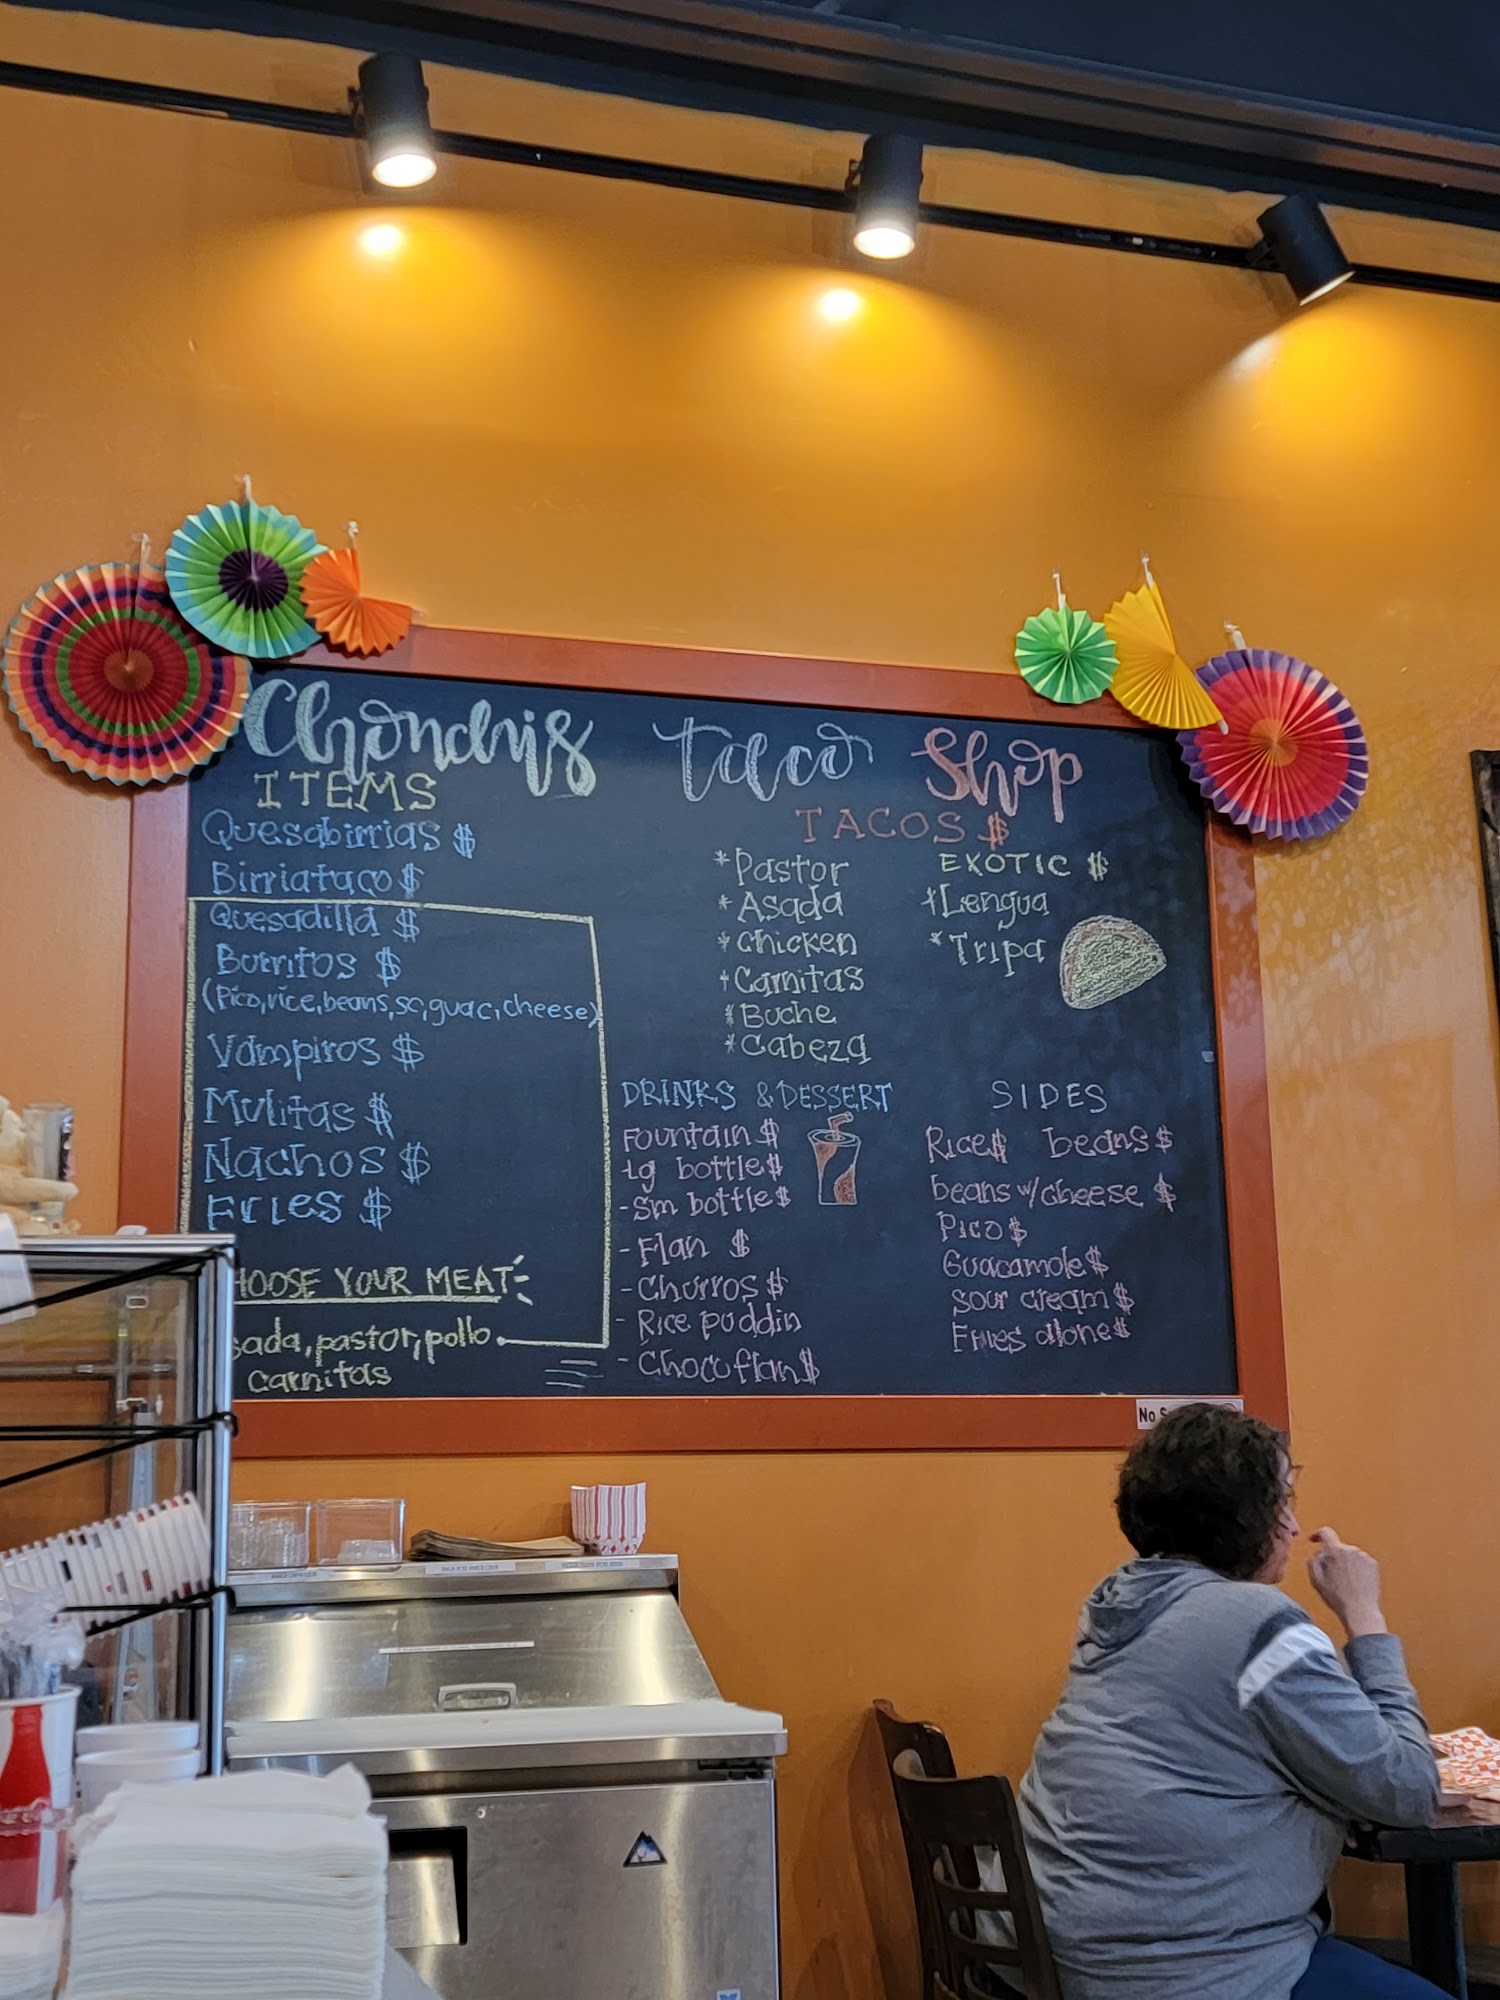 Chonchis taco Shop
ITEMS
Quesabirrias $
Birriataco $
Quesadilla $
Burritos $
(Pico, rice, beans, sc, guac, cheese)
Vampiros $
Mulitas $
Nachos $
Fries $
HOOSE YOUR MEAT
sada, pastor, pollo
carnitas
TACOS $
*Pastor
*Asada
*Chicken
*Carnitas
*Buche
*Cabeza
EXOTIC $
*Lengua
*Tripa
DRINKS & DESSERT
Fountain $
Lg bottle $
-Sm bottle $
-Flan $
-Churros $
-Rice puddin
-Chocoflan $
SIDES
Rice $ beans $
beans w/cheese $
Pico $
Guacamole $
sour cream $
Fries alone $
No